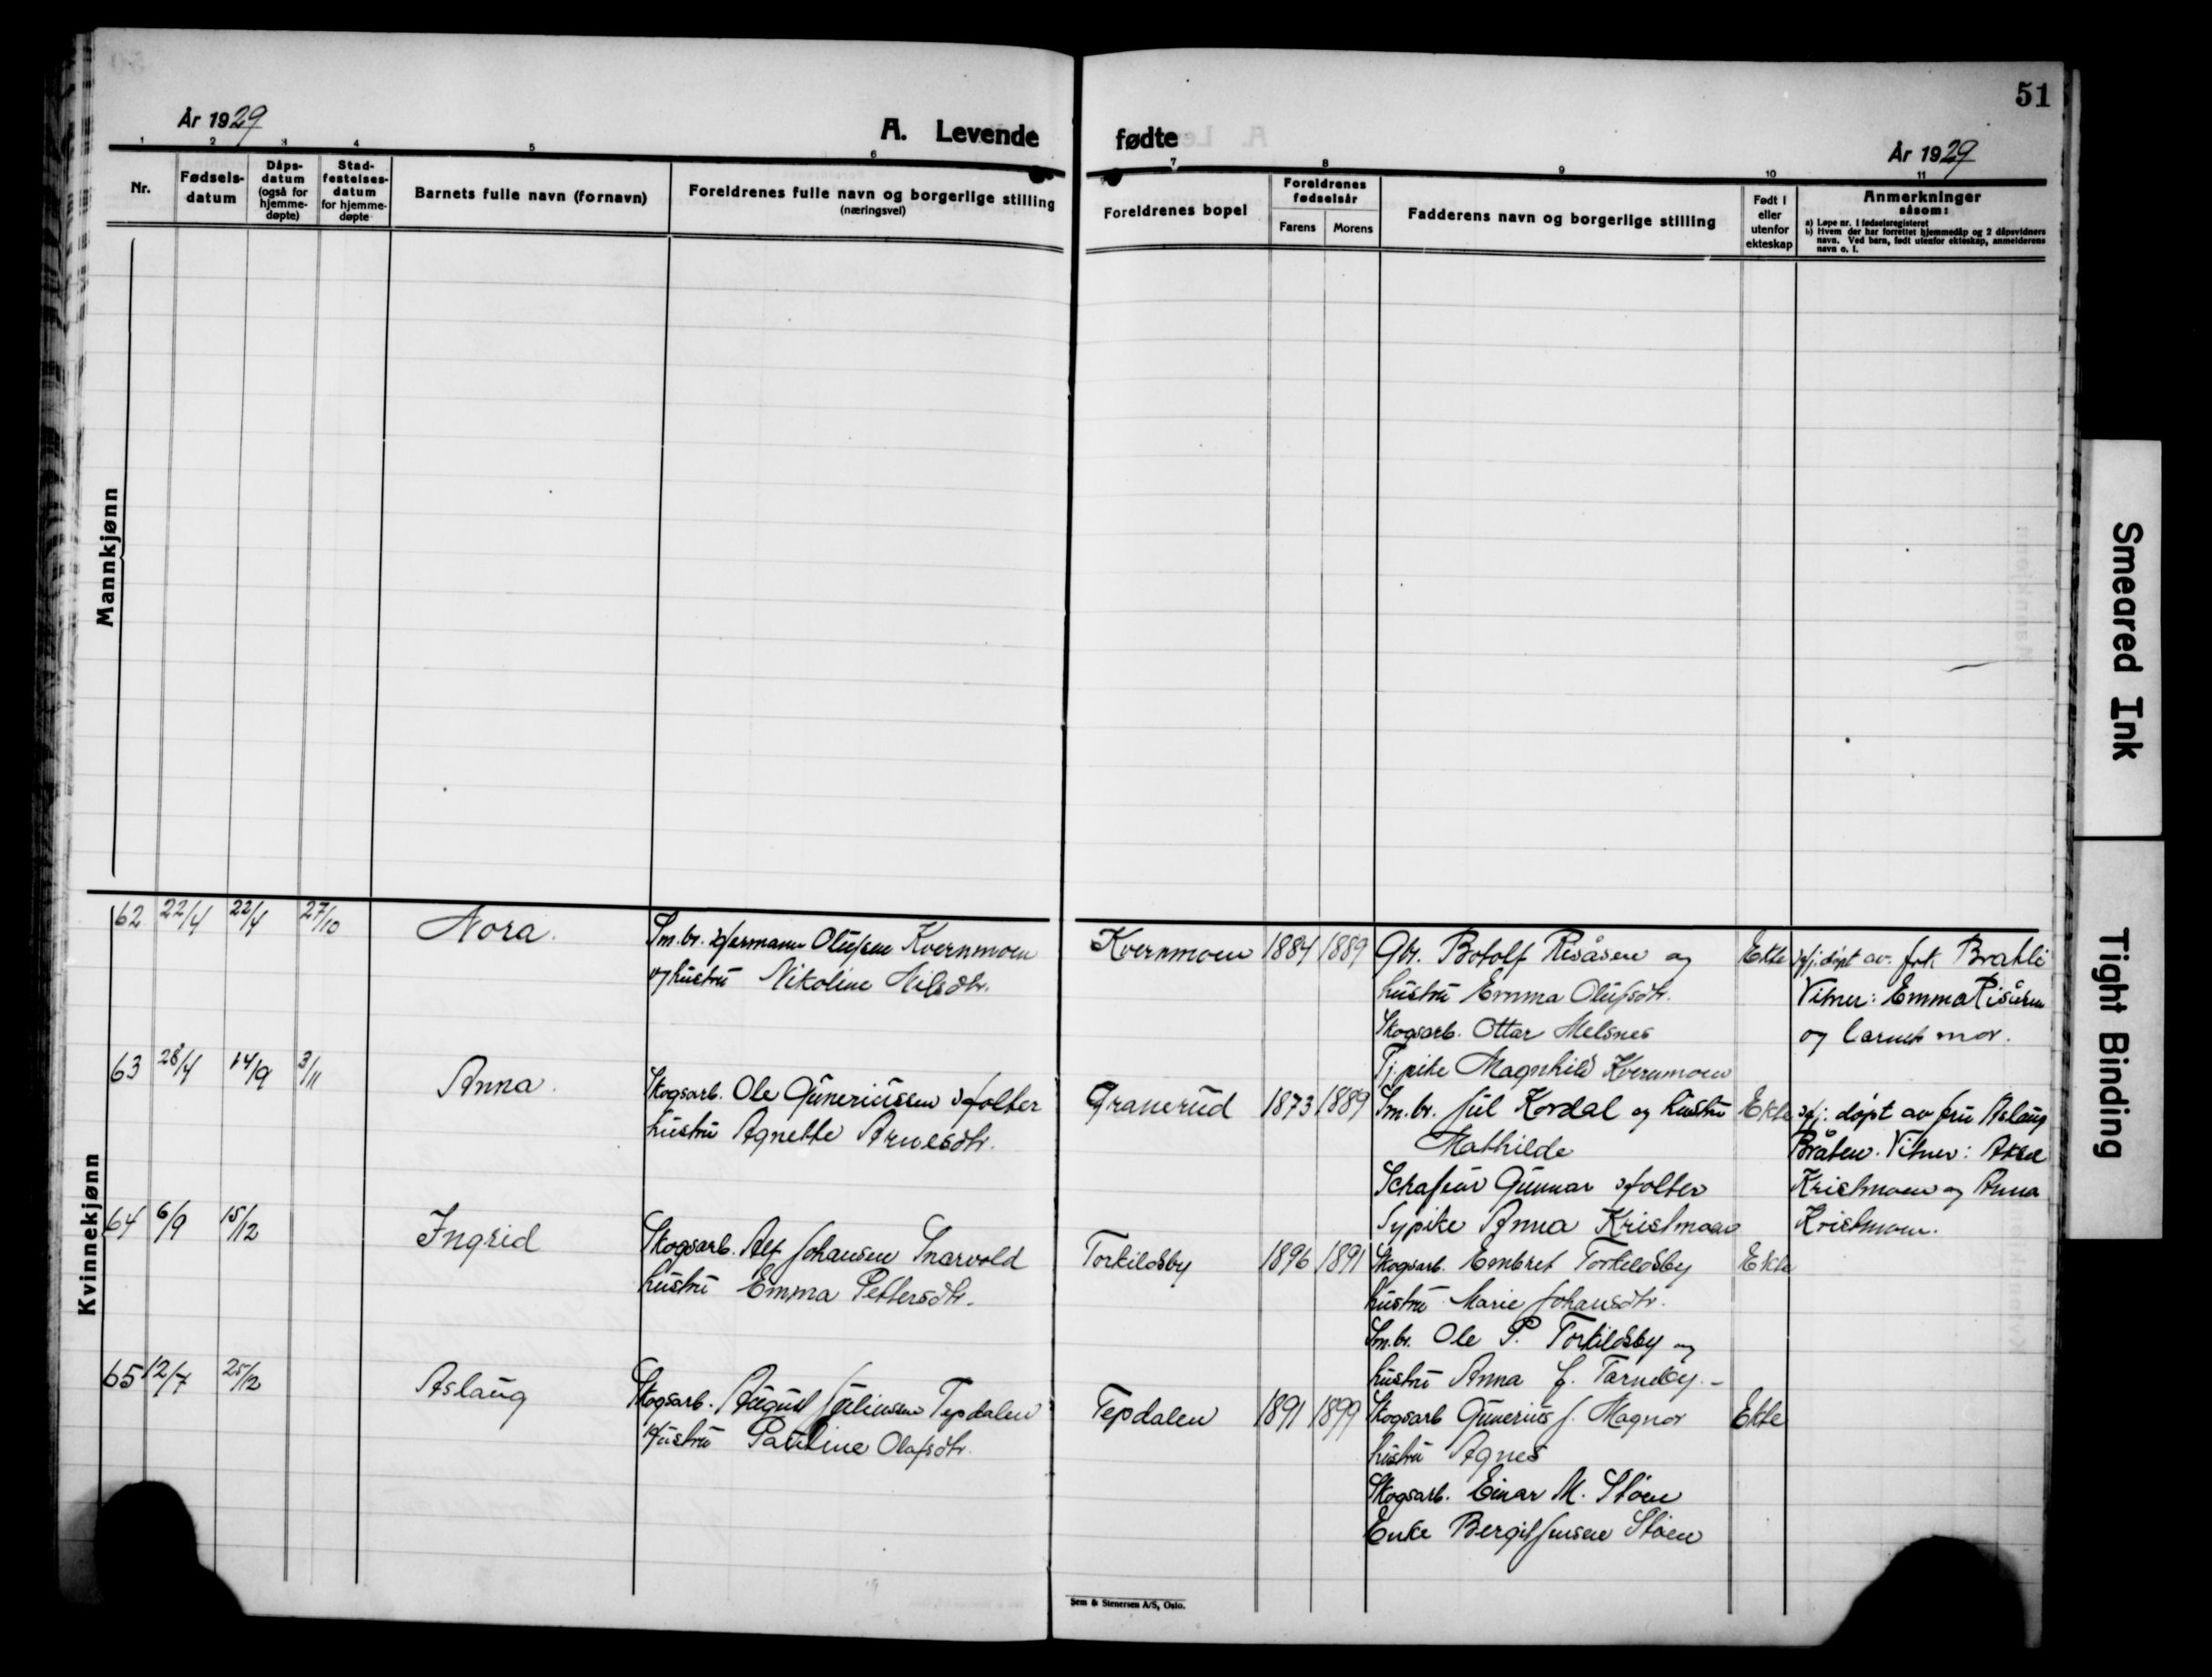 51
År 1929
A. Levende
fødte
År 1929
1 2 3 4 5 6
7 8 9 10 11
Nr.
Fødsels-
datum
Dåps-
datum
(også for
hjemme-
døpte)
Stad-
festelses-
datum
for hjemme-
døpte
Barnets fulle navn (fornavn)
Foreldrenes fulle navn og borgerlige stilling
(næringsvei)
Foreldrenes bopel
Foreldrenes
fødselsår
Farens Morens
Fadderens navn og borgerlige stilling
Født i
eller
utenfor
ekteskap
Anmerkninger
såsom:
a) Løpe nr. i fødselsregisteret
b) Hvem der har forrettet hjemmedåp og 2 dåpsvidners
navn. Ved barn, født utenfor ekteskap, anmelderens
navn o. l.
Mannkjønn
Kvinnekjønn
62 22/4 22/4 27/10 Nora.
Sm.br. Hermann Olufsen Kvernmoen
og hustru Nikoline Nilsdtr.
Kvernmoen 1884 1889
Gbr. Botolf Risåsen og
hustru Emma Olufsdtr.
Skogsarb. Ottar Melsnes
Tj.pike Magnhild Kvernmoen
Ekte
Hj.døpt av frk Bratli
Vitner: Emma Risåsen
og barnets mor.
63 28/4 14/9 3/11 Anna.
Skogsarb. Ole Guneriussen Holter
hustru Agnethe Arnesdtr.
Granerud 1873 1889
Sm.br. Jul Kordal og hustru
Mathilde
Schafeur Gunnar Holter
Sypike Anna Kristmoen
Ekte
Hj. døpt av fru Aslaug
Bråten. Vitner: Aksel
Kristmoen og Anna
Kristmoen.
64 6/9 15/12 Ingrid
Skogsarb. Alf Johansen Snarvold
hustru Emma Pettersdtr.
Torkildsby 1896 1891
Skogsarb. Embret Torkildsby
hustru Marie Johansdtr.
Sm.br. Ole P. Torkildsby og
hustru Anna J. Tarneby.-
Ekte
65 12/7 25/12 Aslaug
Skogsarb. August Juliussen Tepdalen
Hustru Pauline Olafsdtr.
Tepdalen 1891 1899
Skogsarb Gunerius J. Magnor
hustru Agnes
Skogsarb. Einar M. Støen
Enke Bergit Jensen Støen
Ekte
Sem & Stenersen A/S, Oslo.
Smeared Ink
Tight Binding